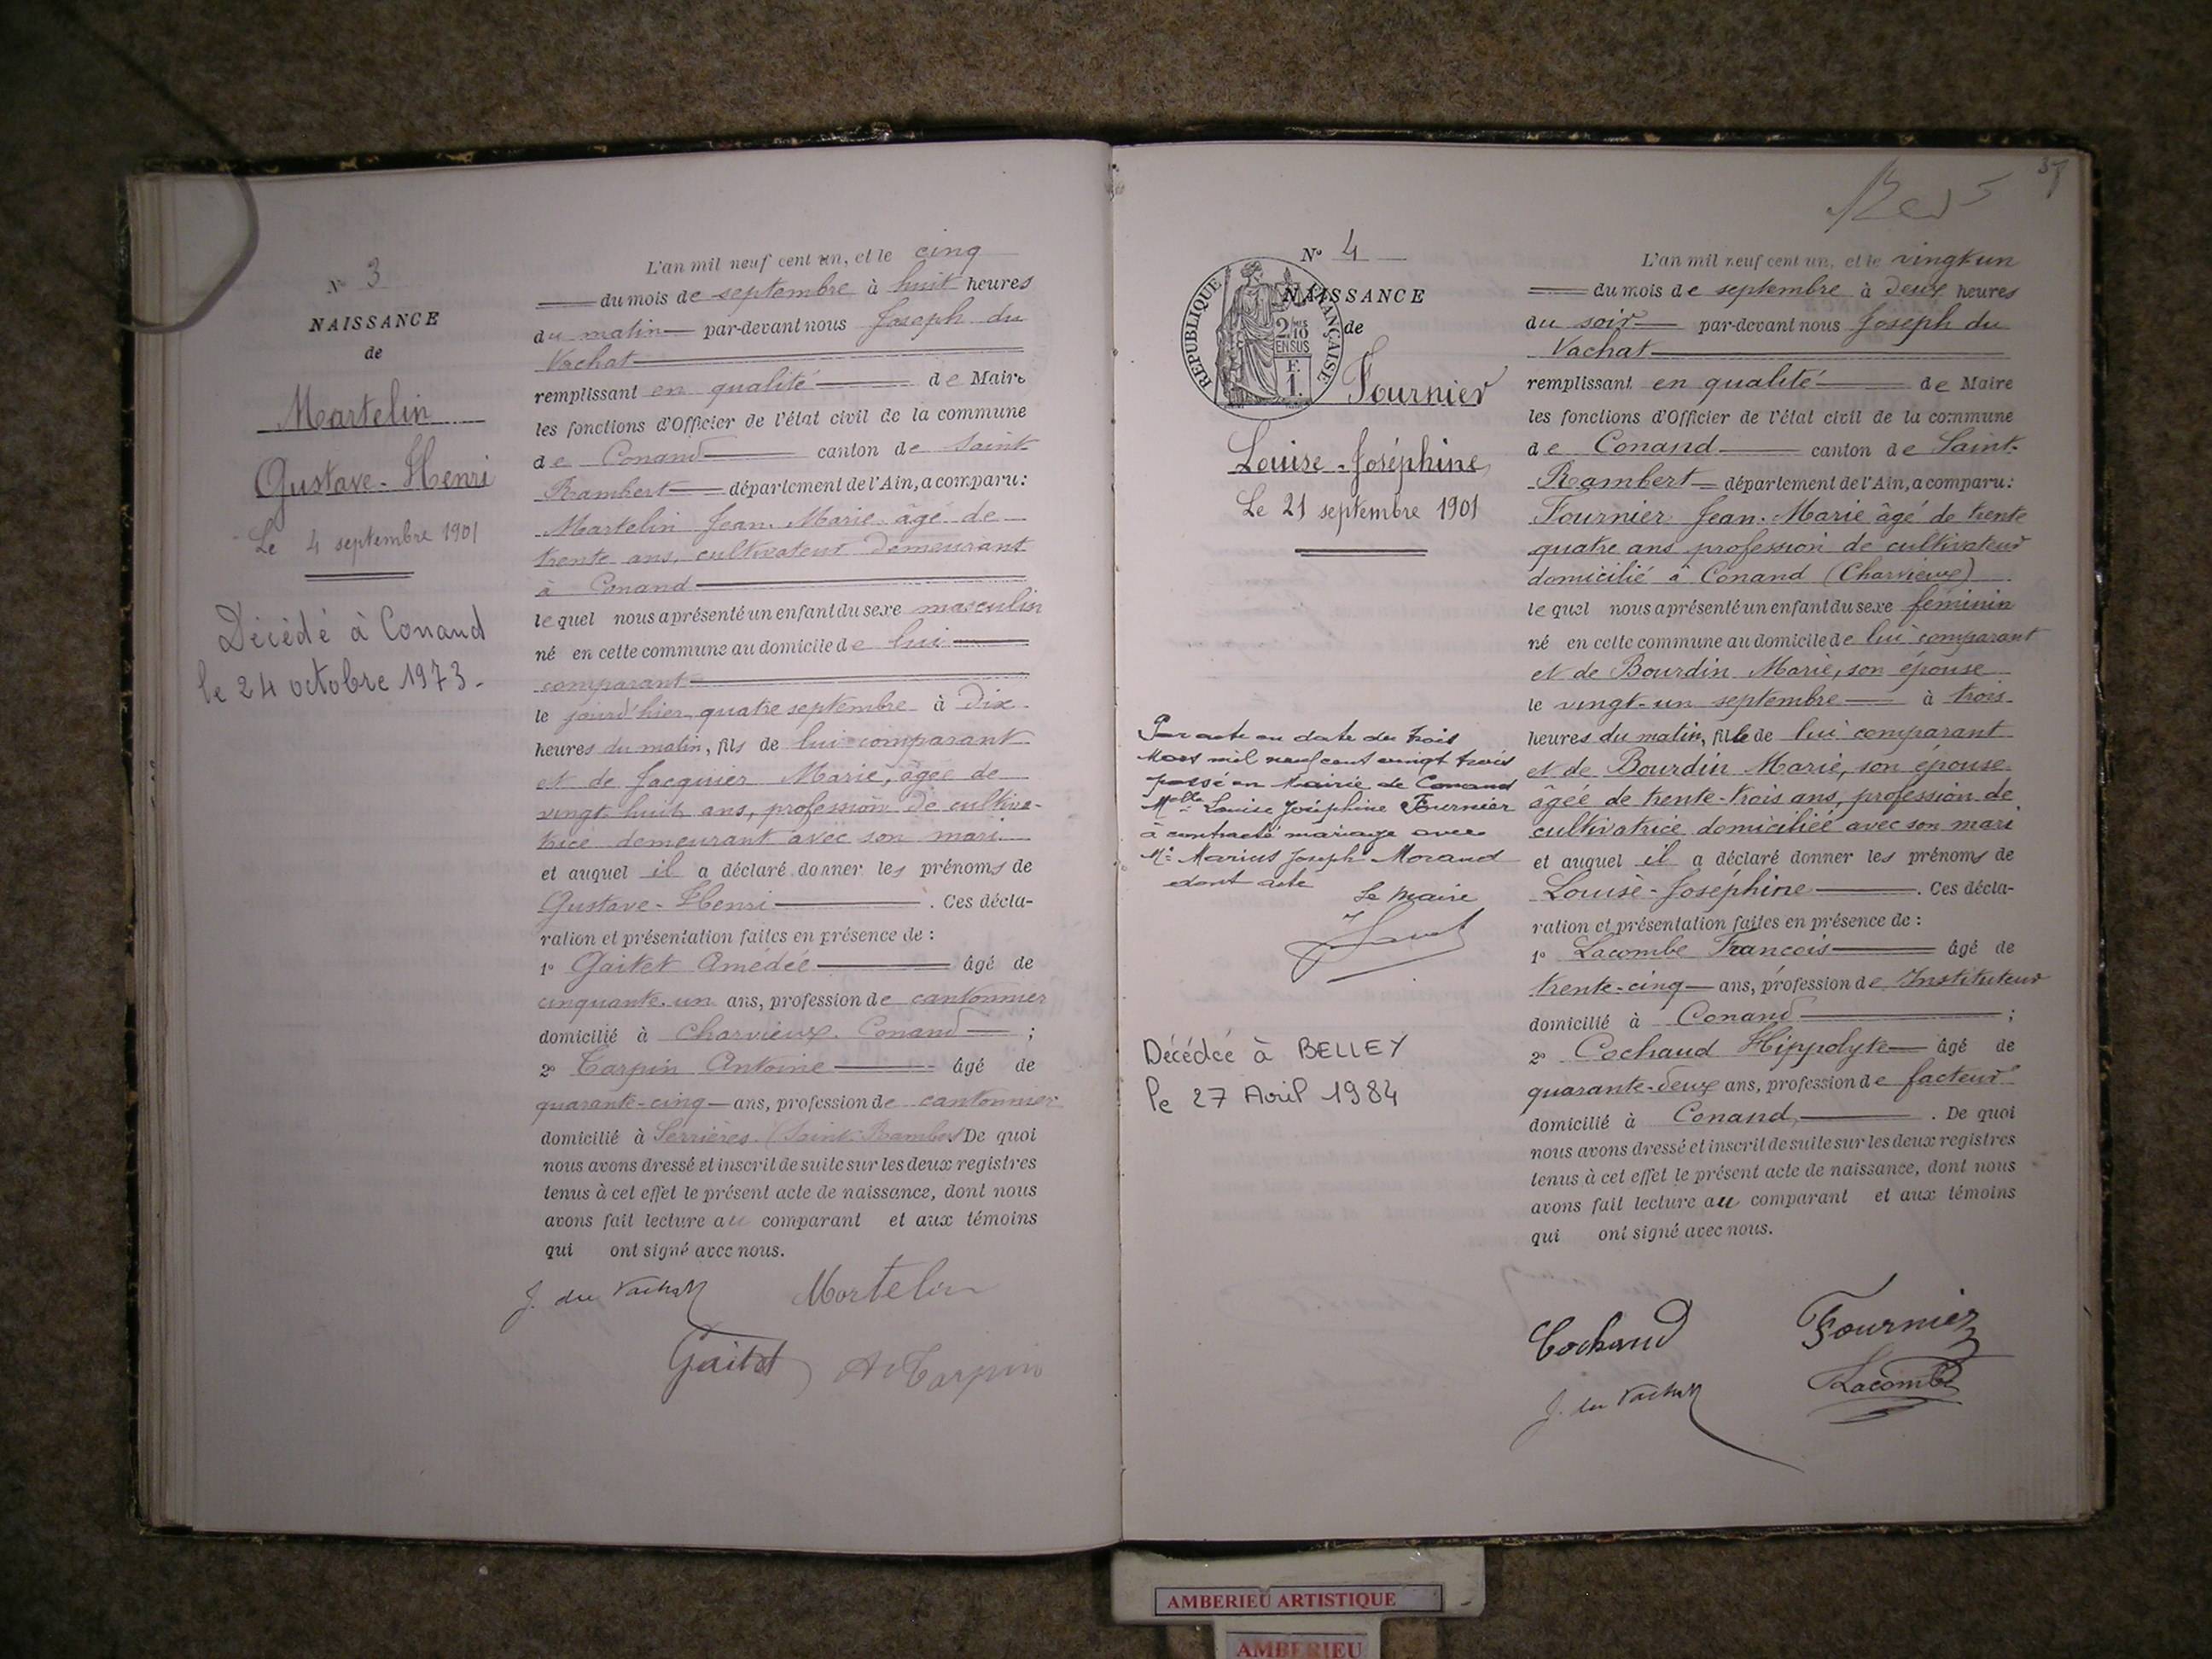 N° 3
NAISSANCE
de
Martelin
Gustave-Henri
Le 4 septembre 1901
Décédé à Conand
le 24 octobre 1973.
L'an mil neuf cent un, et le cinq
du mois de septembre à huit heures
du matin par-devant nous Joseph du
Vachat
remplissant en qualité de Maire
les fonctions d'Officier de l'état civil de la commune
de Conand canton de Saint
Rambert département de l'Ain, a comparu:
Martelin Jean-Marie âgé de
trente ans, cultivateur demeurant
à Conand
le quel nous a présenté un enfant du sexe masculin
né en cette commune au domicile de lui
comparant
le jourd'hier quatre septembre à dix
heures du matin, fils de lui comparant
et de Jacquier Marie, âgée de
vingt huit ans, profession de cultiva-
trice demeurant avec son mari
et auquel il a déclaré donner les prénoms de
Gustave-Henri. Ces décla-
ration et présentation faites en présence de :
1° Gaitet Amedée âgé de
cinquante-un ans, profession de cantonnier
domicilié à Charvieux-Conand ;
2° Carpin Antoine âgé de
quarante-cinq ans, profession de cantonnier
domicilié à Serrières (Saint-Rambert De quoi
nous avons dressé et inscrit de suite sur les deux registres
tenus à cet effet le présent acte de naissance, dont nous
avons fait lecture au comparant et aux témoins
qui ont signé avec nous.
J. du Vachat Martelin
Gaitet A Carpin
37
N° 4
NAISSANCE
de
REPUBLIQUE FRANÇAISE
2/10 EN SUS
F. 1.
Fournier
Louise-Joséphine
Le 21 septembre 1901
Par acte en date du trois
Mars mil neuf cent vingt trois
passé en Mairie de Conand
Melle Louise Joséphine Fournier
à contracté mariage avec
Mr Marius Joseph Morand
dont acte
Le Maire
Décédée à BELLEY
le 27 Avril 1984
L'an mil neuf cent un, et le vingt un
du mois de septembre à deux heures
du soir par-devant nous Joseph du
Vachat
remplissant en qualité de Maire
les fonctions d'Officier de l'état civil de la commune
de Conand canton de Saint-
Rambert département de l'Ain, a comparu:
Fournier Jean-Marie âgé de trente
quatre ans profession de cultivateur
domicilié à Conand (Charvieux)
le quel nous a présenté un enfant du sexe féminin
né en cette commune au domicile de lui comparant
et de Bourdin Marie, son épouse
le vingt-un septembre à trois
heures du matin, fille de lui comparant
et de Bourdin Marie, son épouse
âgée de trente-trois ans, profession de
cultivatrice domiciliée avec son mari
et auquel il a déclaré donner les prénoms de
Louise-Joséphine. Ces décla-
ration et présentation faites en présence de :
1° Lacombe Francois âgé de
trente-cinq ans, profession de Instituteur
domicilié à Conand ;
2° Cochaud Hippolyte âgé de
quarante-deux ans, profession de facteur
domicilié à Conand. De quoi
nous avons dressé et inscrit de suite sur les deux registres
tenus à cet effet le présent acte de naissance, dont nous
avons fait lecture au comparant et aux témoins
qui ont signé avec nous.
Cochaud Fournier
J. du Vachat Lacombe
AMBERIEU ARTISTIQUE
AMBERIEU